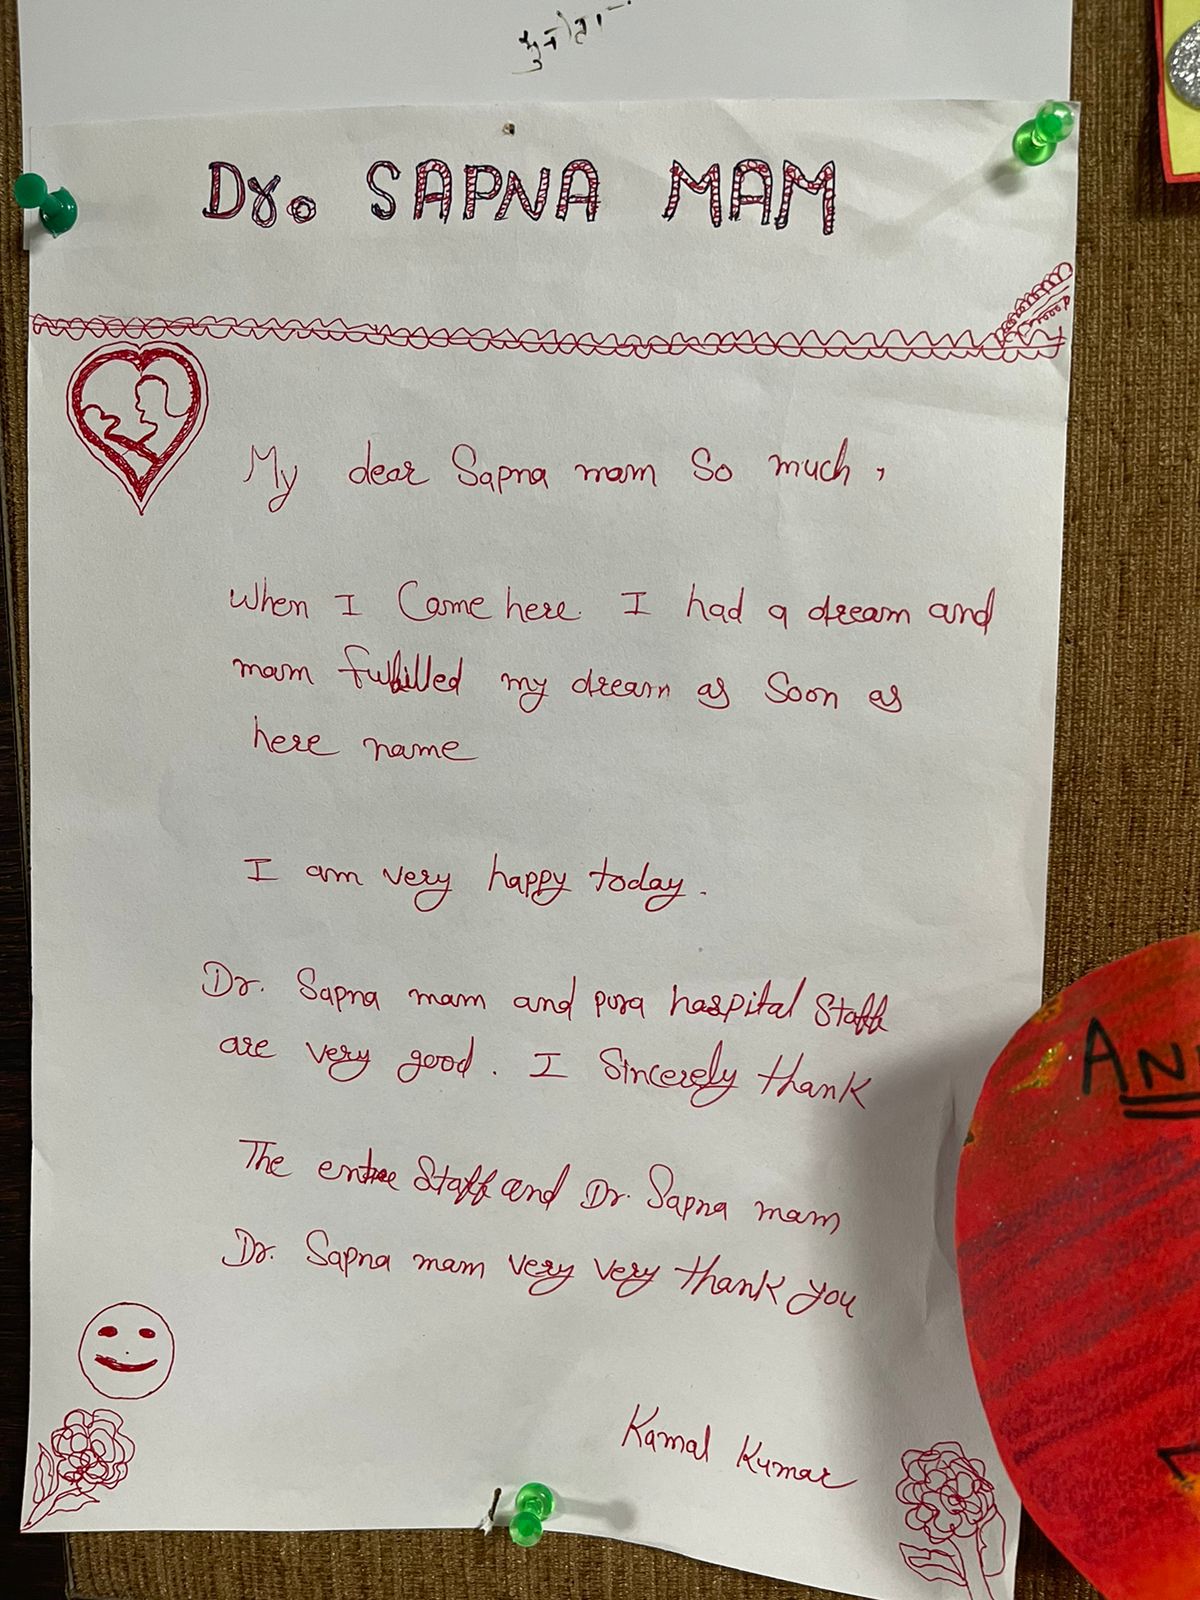 Dr. SAPNA MAM
My dear Sapna mam So much,
When I Came here. I had a dream and
mam fulfilled my dream as Soon as
here name
I am very happy today.
Dr. Sapna mam and pura haspital Staff
are very good. I Sincerely thank
The entire Staff and Dr. Sapna mam
Dr. Sapna mam very very thank you
Kamal Kumar